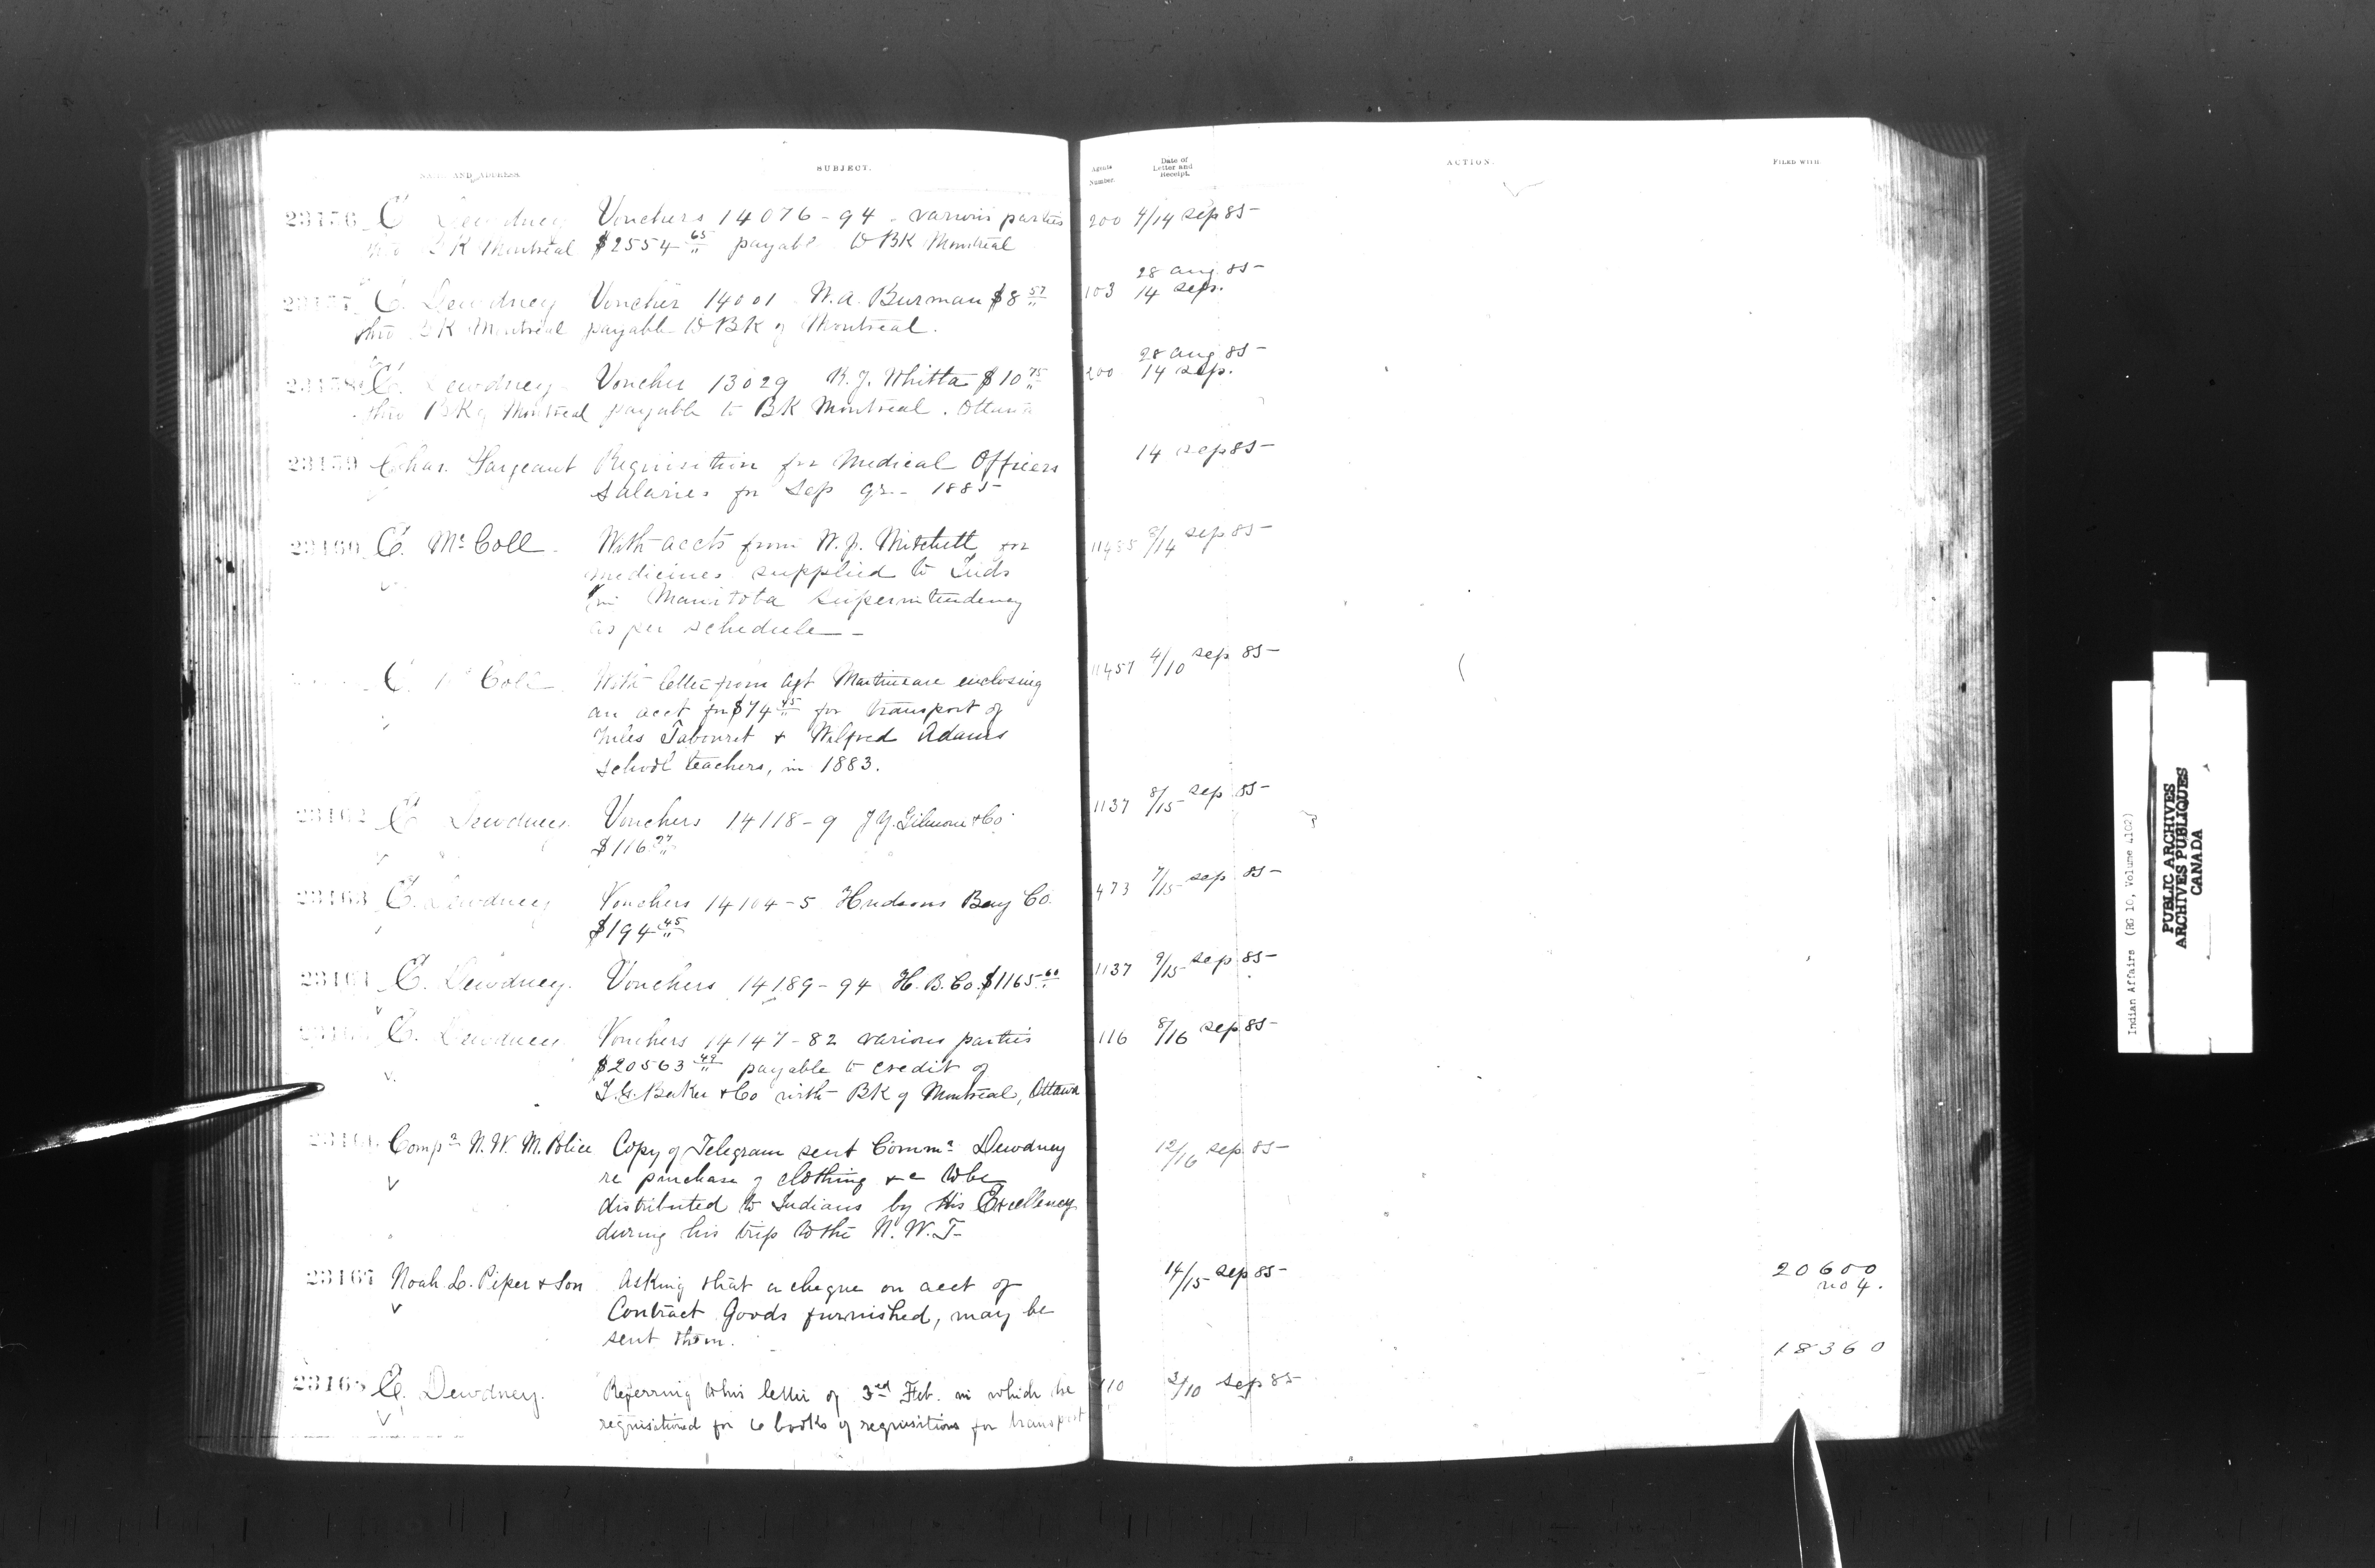 NAME AND ADDRESS. SUBJECT. Agents Number. Date of Letter and Receipt. ACTION. FILED WITH.
23156 E Dewdney Vouchers 14076-94 - various parties 200 4/14 Sep 85
thro BK Montreal $2554 65 payable to BK Montreal
28 aug. 85
23157 E. Dewdney Voucher 14001 W. A. Burman $8 57 103 14 Sep.
thro BK Montreal payable to BK of Montreal.
28 aug 85
23158 E. Dewdney Voucher 13029 R. J. Whitla $10 75 200 14 Sep.
thro BK of Montreal payable to BK Montreal. Ottawa
23159 Chas. Sargeant Requisition for Medical Officers 14 Sep 85
Salaries for Sep qr. - 1885
23160 E. McColl With accts from W. J. Mitchell for 8/14 Sep 85
medicines supplied to Inds
in Manitoba Superintendency
as per schedule -
E. McColl With letter from Agt Martineau enclosing 11457 4/10 Sep 85
an acct for $74 45 for transport of
Miles Tabouret + Wilfred Adams
School teachers, in 1883.
23162 E Dewdney Vouchers 14118-9 J Y. Gilmour & Co 1137 8/15 Sep 85
$116
23163 E. Dewdney Vouchers 14104-5 Hudsons Bay Co. 473 7/15 Sep 85
$194 45
23164 E. Dewdney. Vouchers 14189-94 H. B. Co. $1165 60 1137 9/15 Sep 85
E. Dewdney Vouchers 14147-82 various parties 116 8/16 Sep 85
$20563 49 payable to credit of
I. G. Baker & Co with BK of Montreal, Ottawa
Compr N. W. M. Police Copy of Telegram sent Commr Dewdney 12/16 Sep 85
re purchase of clothing &c to be
distributed to Indians by His Excellency
during his trip to the N. W. T.
23167 Noah L. Piper & Son Asking that a cheque on acct of 14/15 Sep 85 20600
Contract Goods furnished, may be no 4.
sent them.
18360
23168 E. Dewdney. Referring to his letter of 3rd Feb. in which he 110 3/10 Sep 85
requisitioned for 6 books of requisitions for transport
Indian Affairs (RG 10, Volume 4102)
PUBLIC ARCHIVES
ARCHIVES PUBLIQUES
CANADA